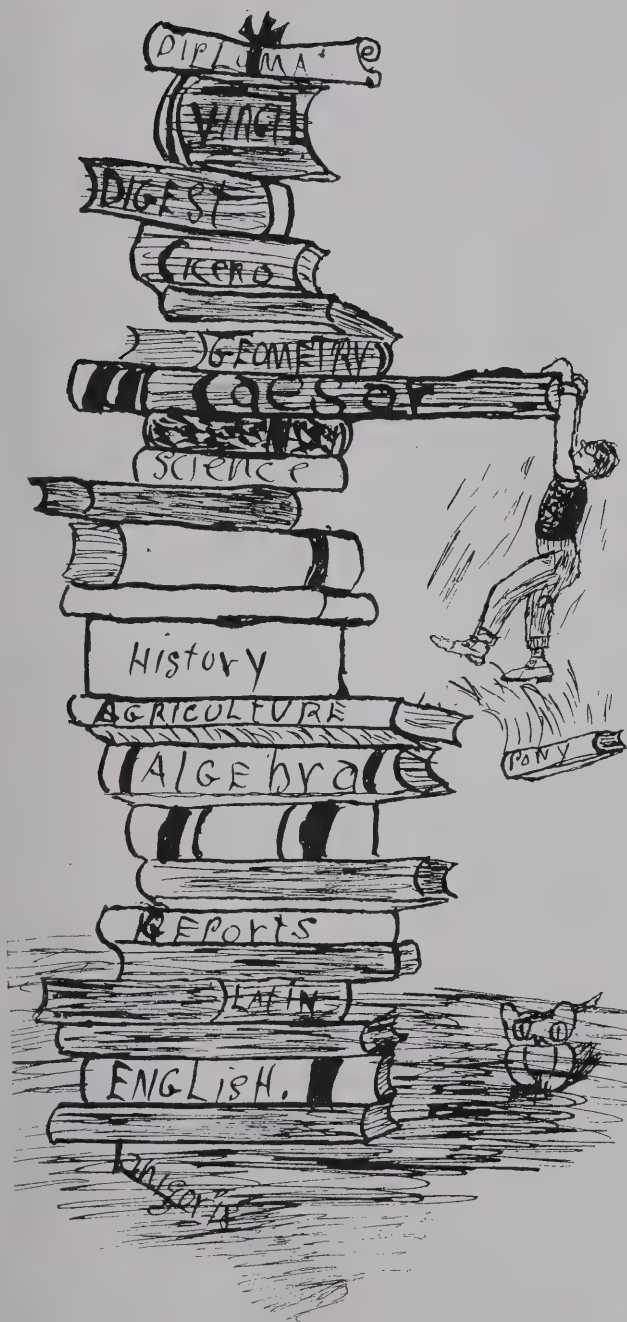 DIPLOMA
VIRGIL
DIGEST
CICERO
GEOMETRY
Caesar
Science
History
AGRICULTURE
PONY
ALGEbra
REPorts
LATIN
ENGLisH.